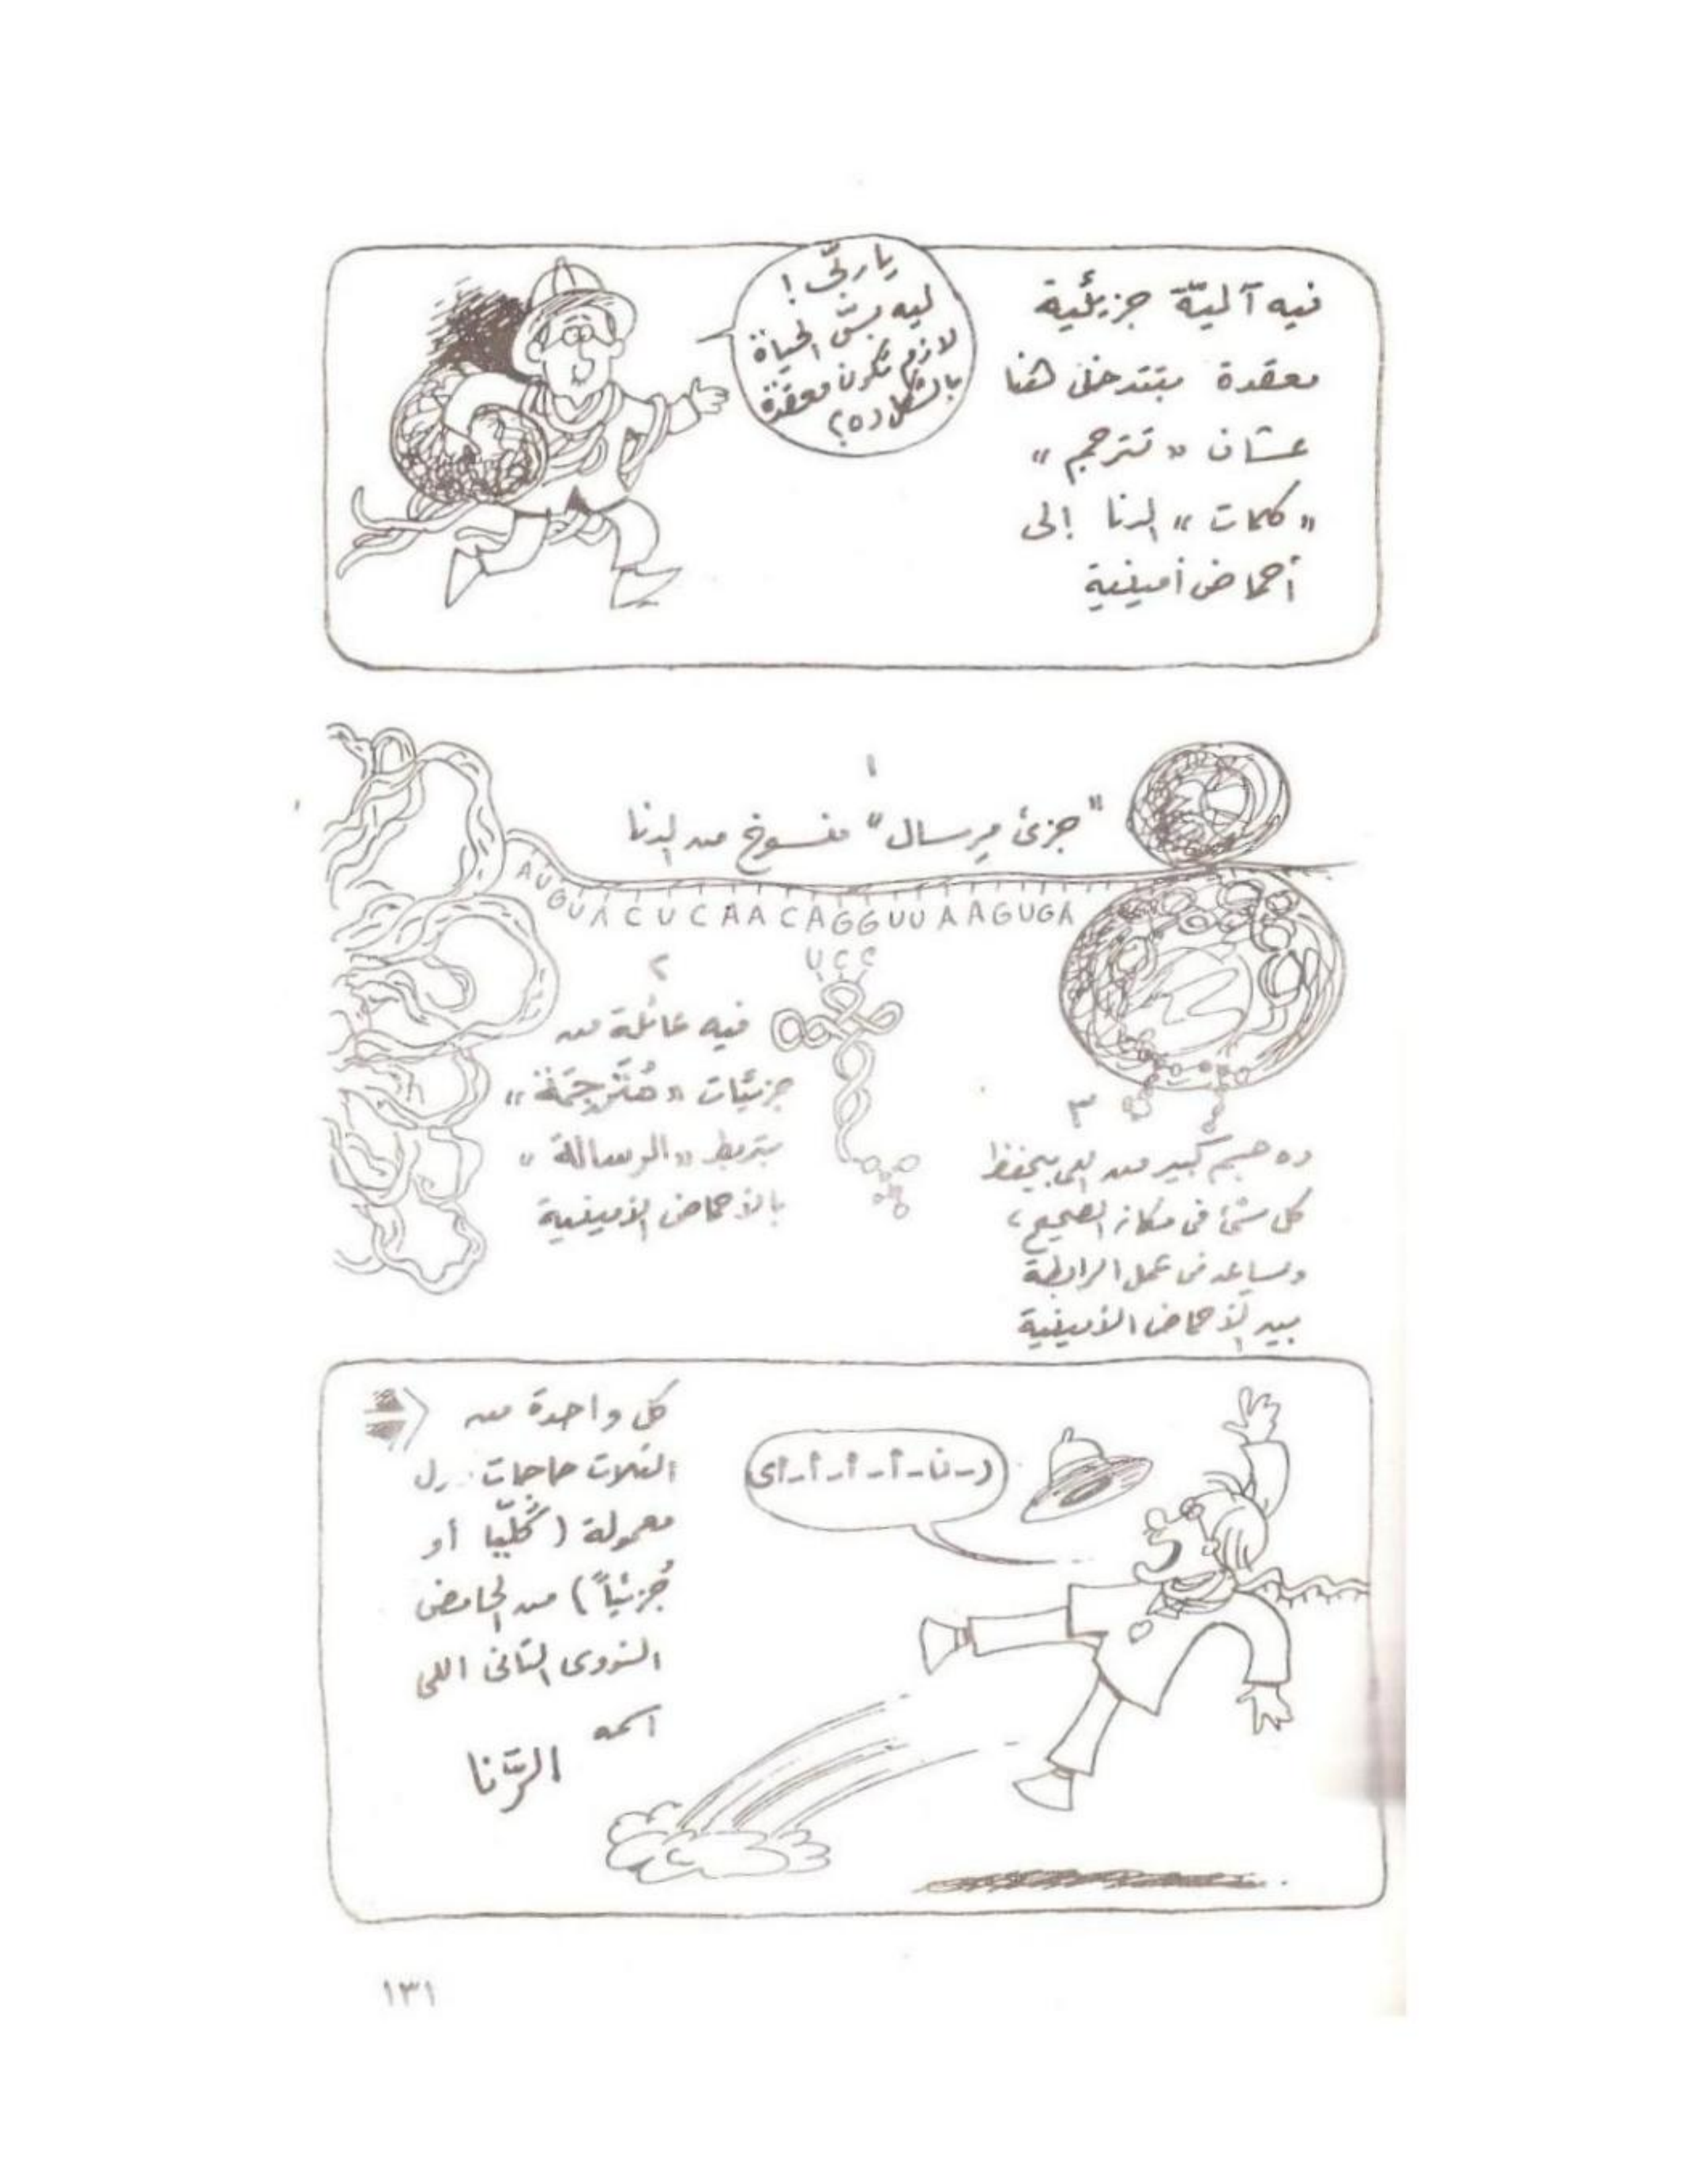 فيه آليّة جزيئية
معقدة بتتدخل هنا
عشان «تترجم»
«كلمات» الدنا إلى
أحماض أمينية
ياربّى!
ليه بسّ الحياة
لازم تكون معقدة
بالشكل ده؟
١
"جزئ مرسال" منسوخ من الدنا
AUGUACUCAACAGGUUAAGUGA
UCC
٢
فيه عائلة من
جزئيات «مُتَرجِمَة»
بتربط «الرسالة»
بالأحماض الأمينية
٣
ده جسم كبير من اللى بيحفظ
كل شئ فى مكانه الصحيح،
ويساعد فى عمل الرابطة
بين الأحماض الأمينية
كل واحدة من
التلات حاجات دول
معمولة (كُليّا أو
جُزئياً) من الحامض
النووى التانى اللى
اسمه
الرَّنا
ر-نا-أ-أ-أ-أى
١٣١